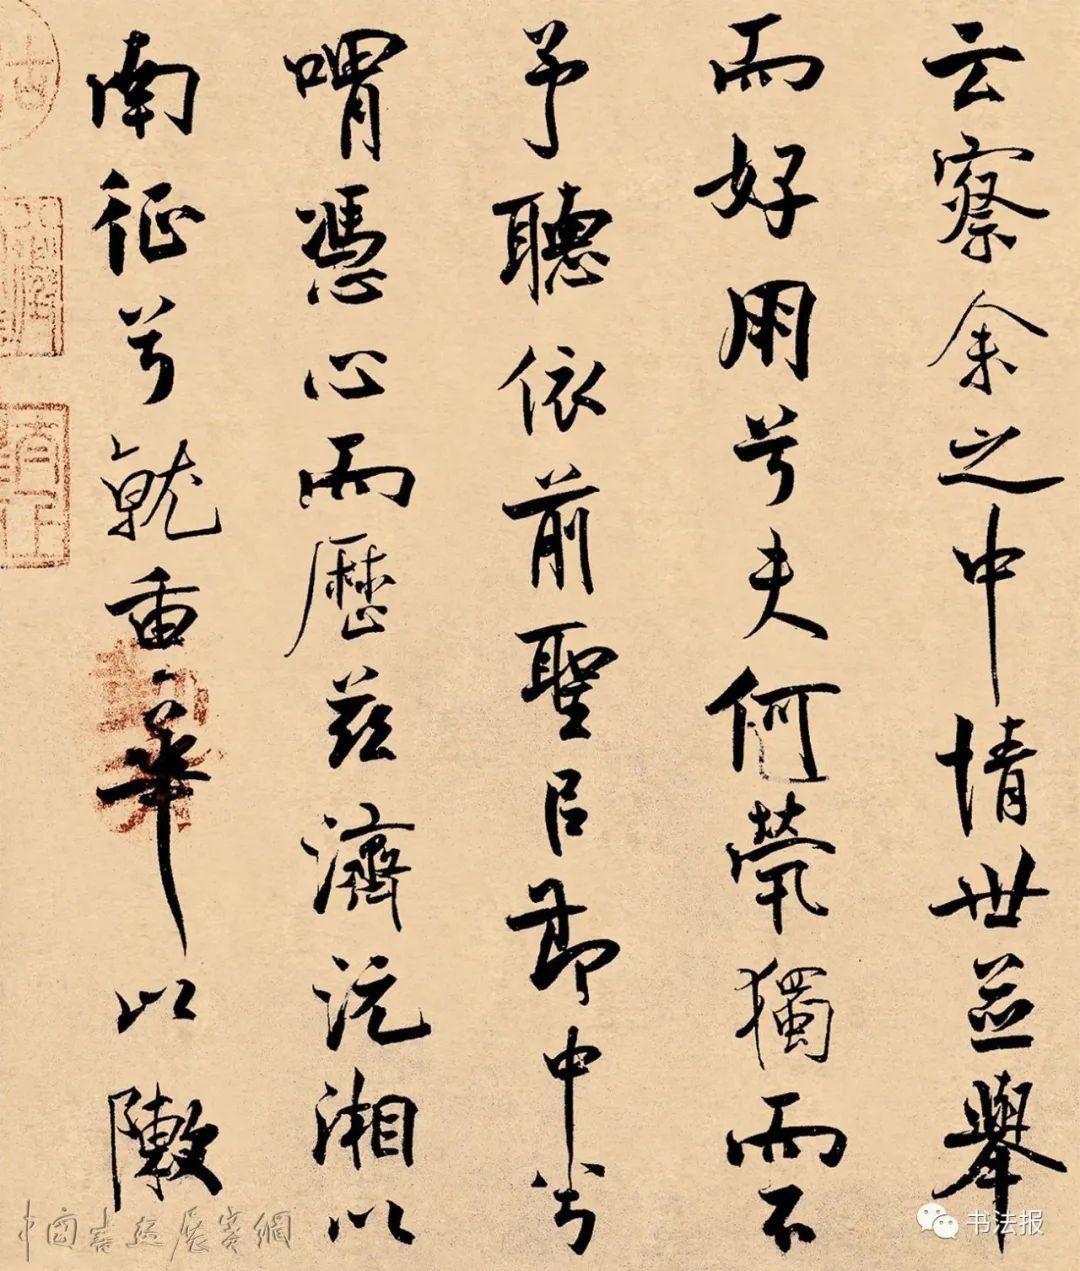 云察余之中情世並舉
而好朋兮夫何煢獨而不
予聽依前聖㠯節中兮
喟憑心而歷茲濟沅湘以
南征兮就重華以敶
中國書法展賽網
书法报